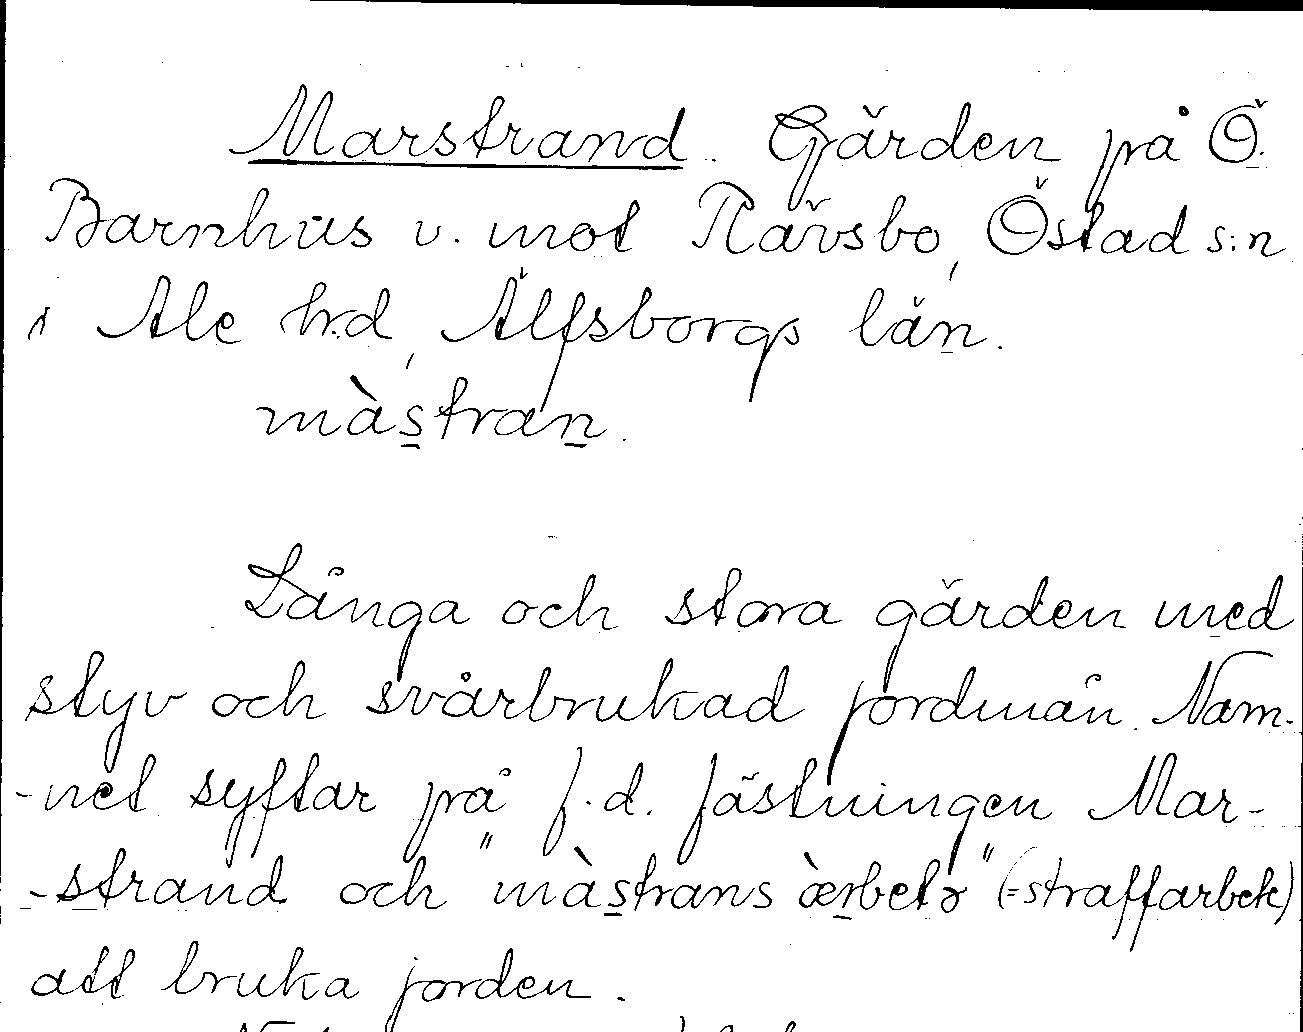 Marstrand. Gärden på Ö.
Barnhus v. mot Rävsbo, Östad s:n
i Ale h:d, Älfsborgs län.
màs̲tran̲.
Långa och stora gärden med
styv och svårbrukad jordmån. Nam-
-net syftar på f.d. fästningen Mar-
-strand och "màs̲trans àrbetə" (=straffarbete)
att bruka jorden.